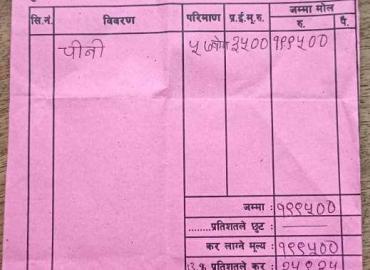 जम्मा मोल
सि.नं. विवरण परिमाण प्र.ई.मू.रु. रु. पै.
चीनी ५७ ३५०० १९९५००
जम्मा : १९९५००
........प्रतिशतले छुट :
कर लाग्ने मूल्य : १९९५००
१३ % प्रतिशतले कर :